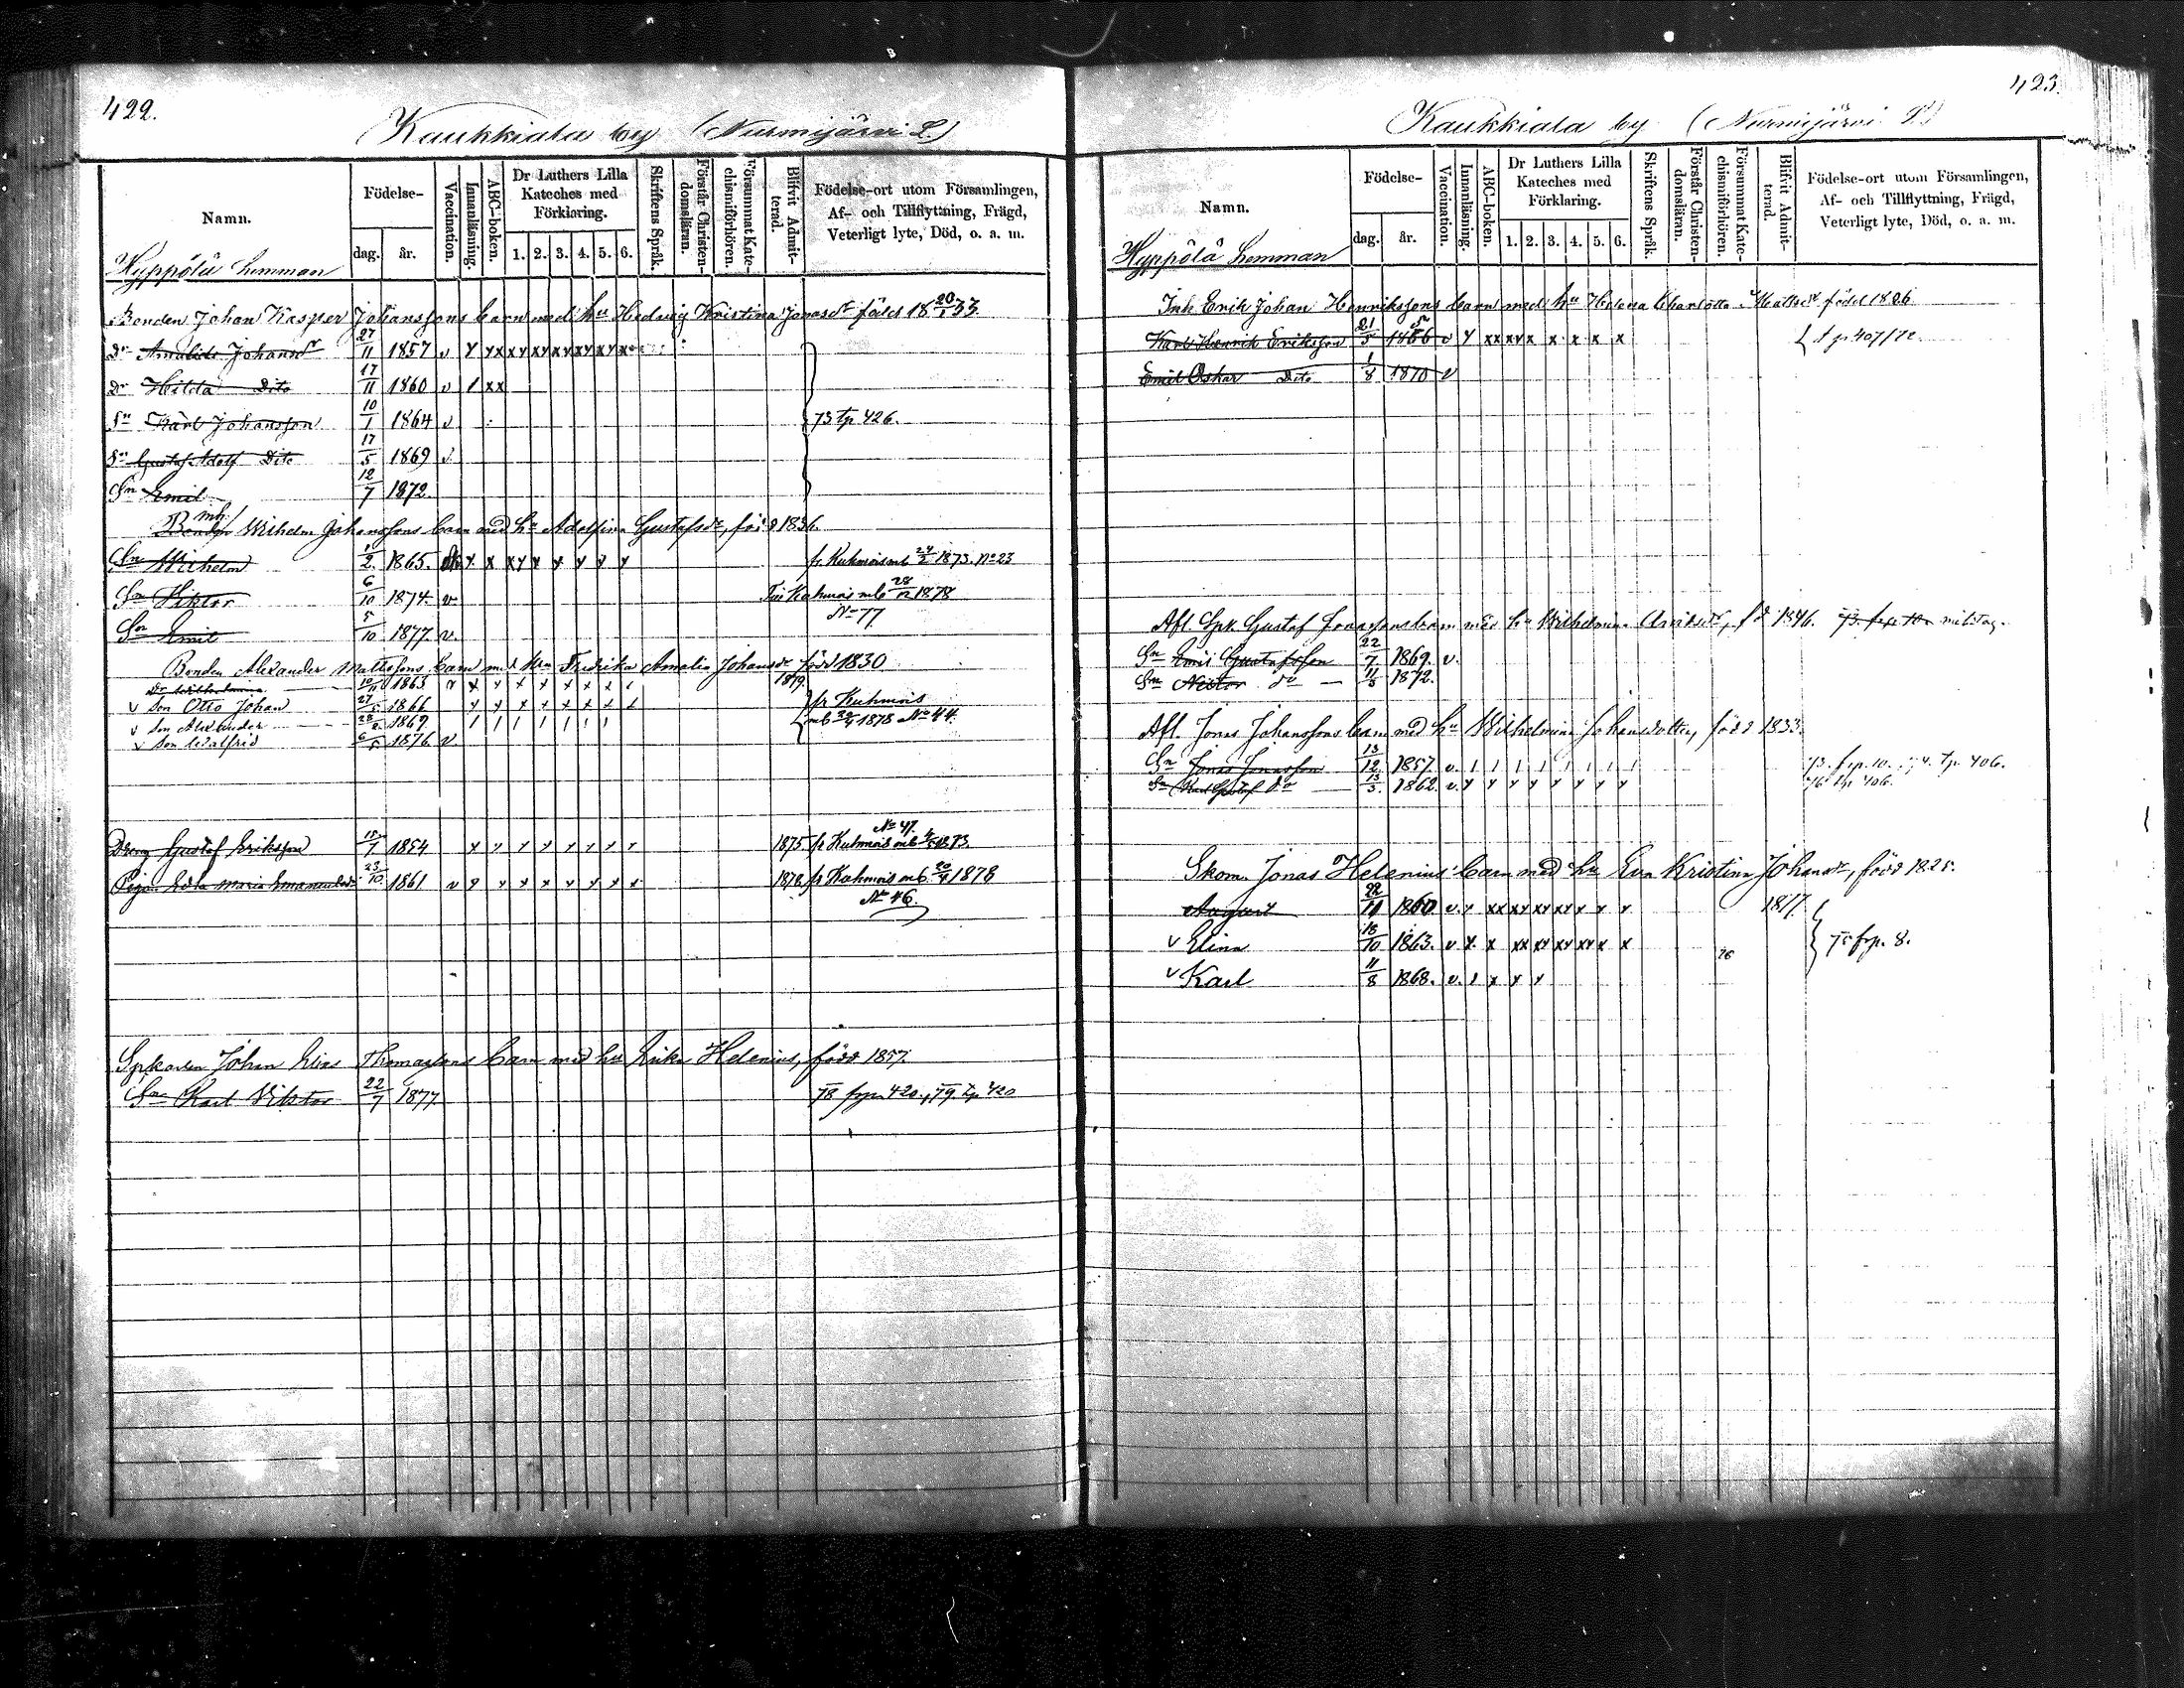 422.
Kaukkiala by (Nurmijärvi L.)
Namn.
Födelse-
dag.
år.
Vaccination.
Innanläsning.
ABC-boken.
Dr Luthers Lilla Kateches med Förklaring.
1. 2. 3. 4. 5. 6.
Skriftens Språk.
Förstår Christendomsläran.
Försummat Katechismiförhören.
Blifvit Admitterad.
Födelse-ort utom Församlingen, Af- och Tillflyttning, Frägd, Veterligt lyte, Död, o. a. m.
Hyppölä hemman
Bonden Johan Kasper Johanssons barn med hu Hedwig Kristina Jonasdr född 18 20/1 33
Dr Amalide Johansdr 27/11 1857 v
Dr Hilda Dito 17/11 1860 v
Sn Karl Johansson 10/1 1864 v 73 tp 426.
Sn Gustaf Adolf Dito 17/5 1869 v
Sn Emil 12/7 1872
Wilhelm Johanssons barn med hu Adolfina Gustafsdr, född 1836.
Sn Wilhelm 1/2 1865. fr. Kuhmois mb 24/2 1873. No 23
Sn Viktor 6/10 1874. v Till Kuhmois mb 28/12 1878
No 77
Sn Emil 5/10 1877. v.
Bonden Alexander Mattssons barn med hu Fredrika Amalia Johansdr född 1830
Dr Wilhelmina 10/11 1863 1879.
v Son Otto Johan 27/5 1866 fr Kuhmois
v Son Alexander 1869 1878 No 44.
v Son Walfrid 6/5 1876 v
No 47.
Dreng Gustaf Eriksson 1854 1875 fr Kuhmois mb 1873.
Pigan Edla Maria Emanuelsdr 23/10 1861 v 1878 fr Kuhmois mb 20/4 1878
No 46.
Spkarlen Johan Elias Thomassons barn med hu Erika Helenius, född 1857.
Sn Karl Viktor 22/7 1877. 78 frp. 420., 79. tp. 420
423.
Kaukkiala by (Nurmijärvi L.)
Namn.
Födelse-
dag.
år.
Vaccination.
Innanläsning.
ABC-boken.
Dr Luthers Lilla Kateches med Förklaring.
1. 2. 3. 4. 5. 6.
Skriftens Språk.
Förstår Christendomsläran.
Försummat Katechismiförhören.
Blifvit Admitterad.
Födelse-ort utom Församlingen, Af- och Tillflyttning, Frägd, Veterligt lyte, Död, o. a. m.
Hyppölä hemman
Inh Erik Johan Henrikssons barn med hu Helena Charlotta Mattsdr född 1826
Karl Henrik Eriksson 21/5 v t p 407/72.
Emil Oskar Dito 1/8 1870 v
Afl. Spk. Gustaf Jonassons barn med hu Wilhelmina, fd 1846.
Sn Emil Gustafsson 22/7 1869. v.
Sn Nestor do 11/3 1872.
Afl. Jonas Johanssons barn med hu Wilhelmina Johansdotter, född 1833.
Sn Jonas Jonasson 13/12 1857. v. 73. frp. 10. tp. 406.
Sn Karl Gustaf do 13/3. 1862. v. 76 tp. 406.
Skom. Jonas Helenius' barn med hu Eva Kristina Johansdr, född 1825.
August 22/11 1860 v. 1877.
v Elina 18/10 1863. v 75 frp. 8.
76
v Karl 11/8 1868. v.